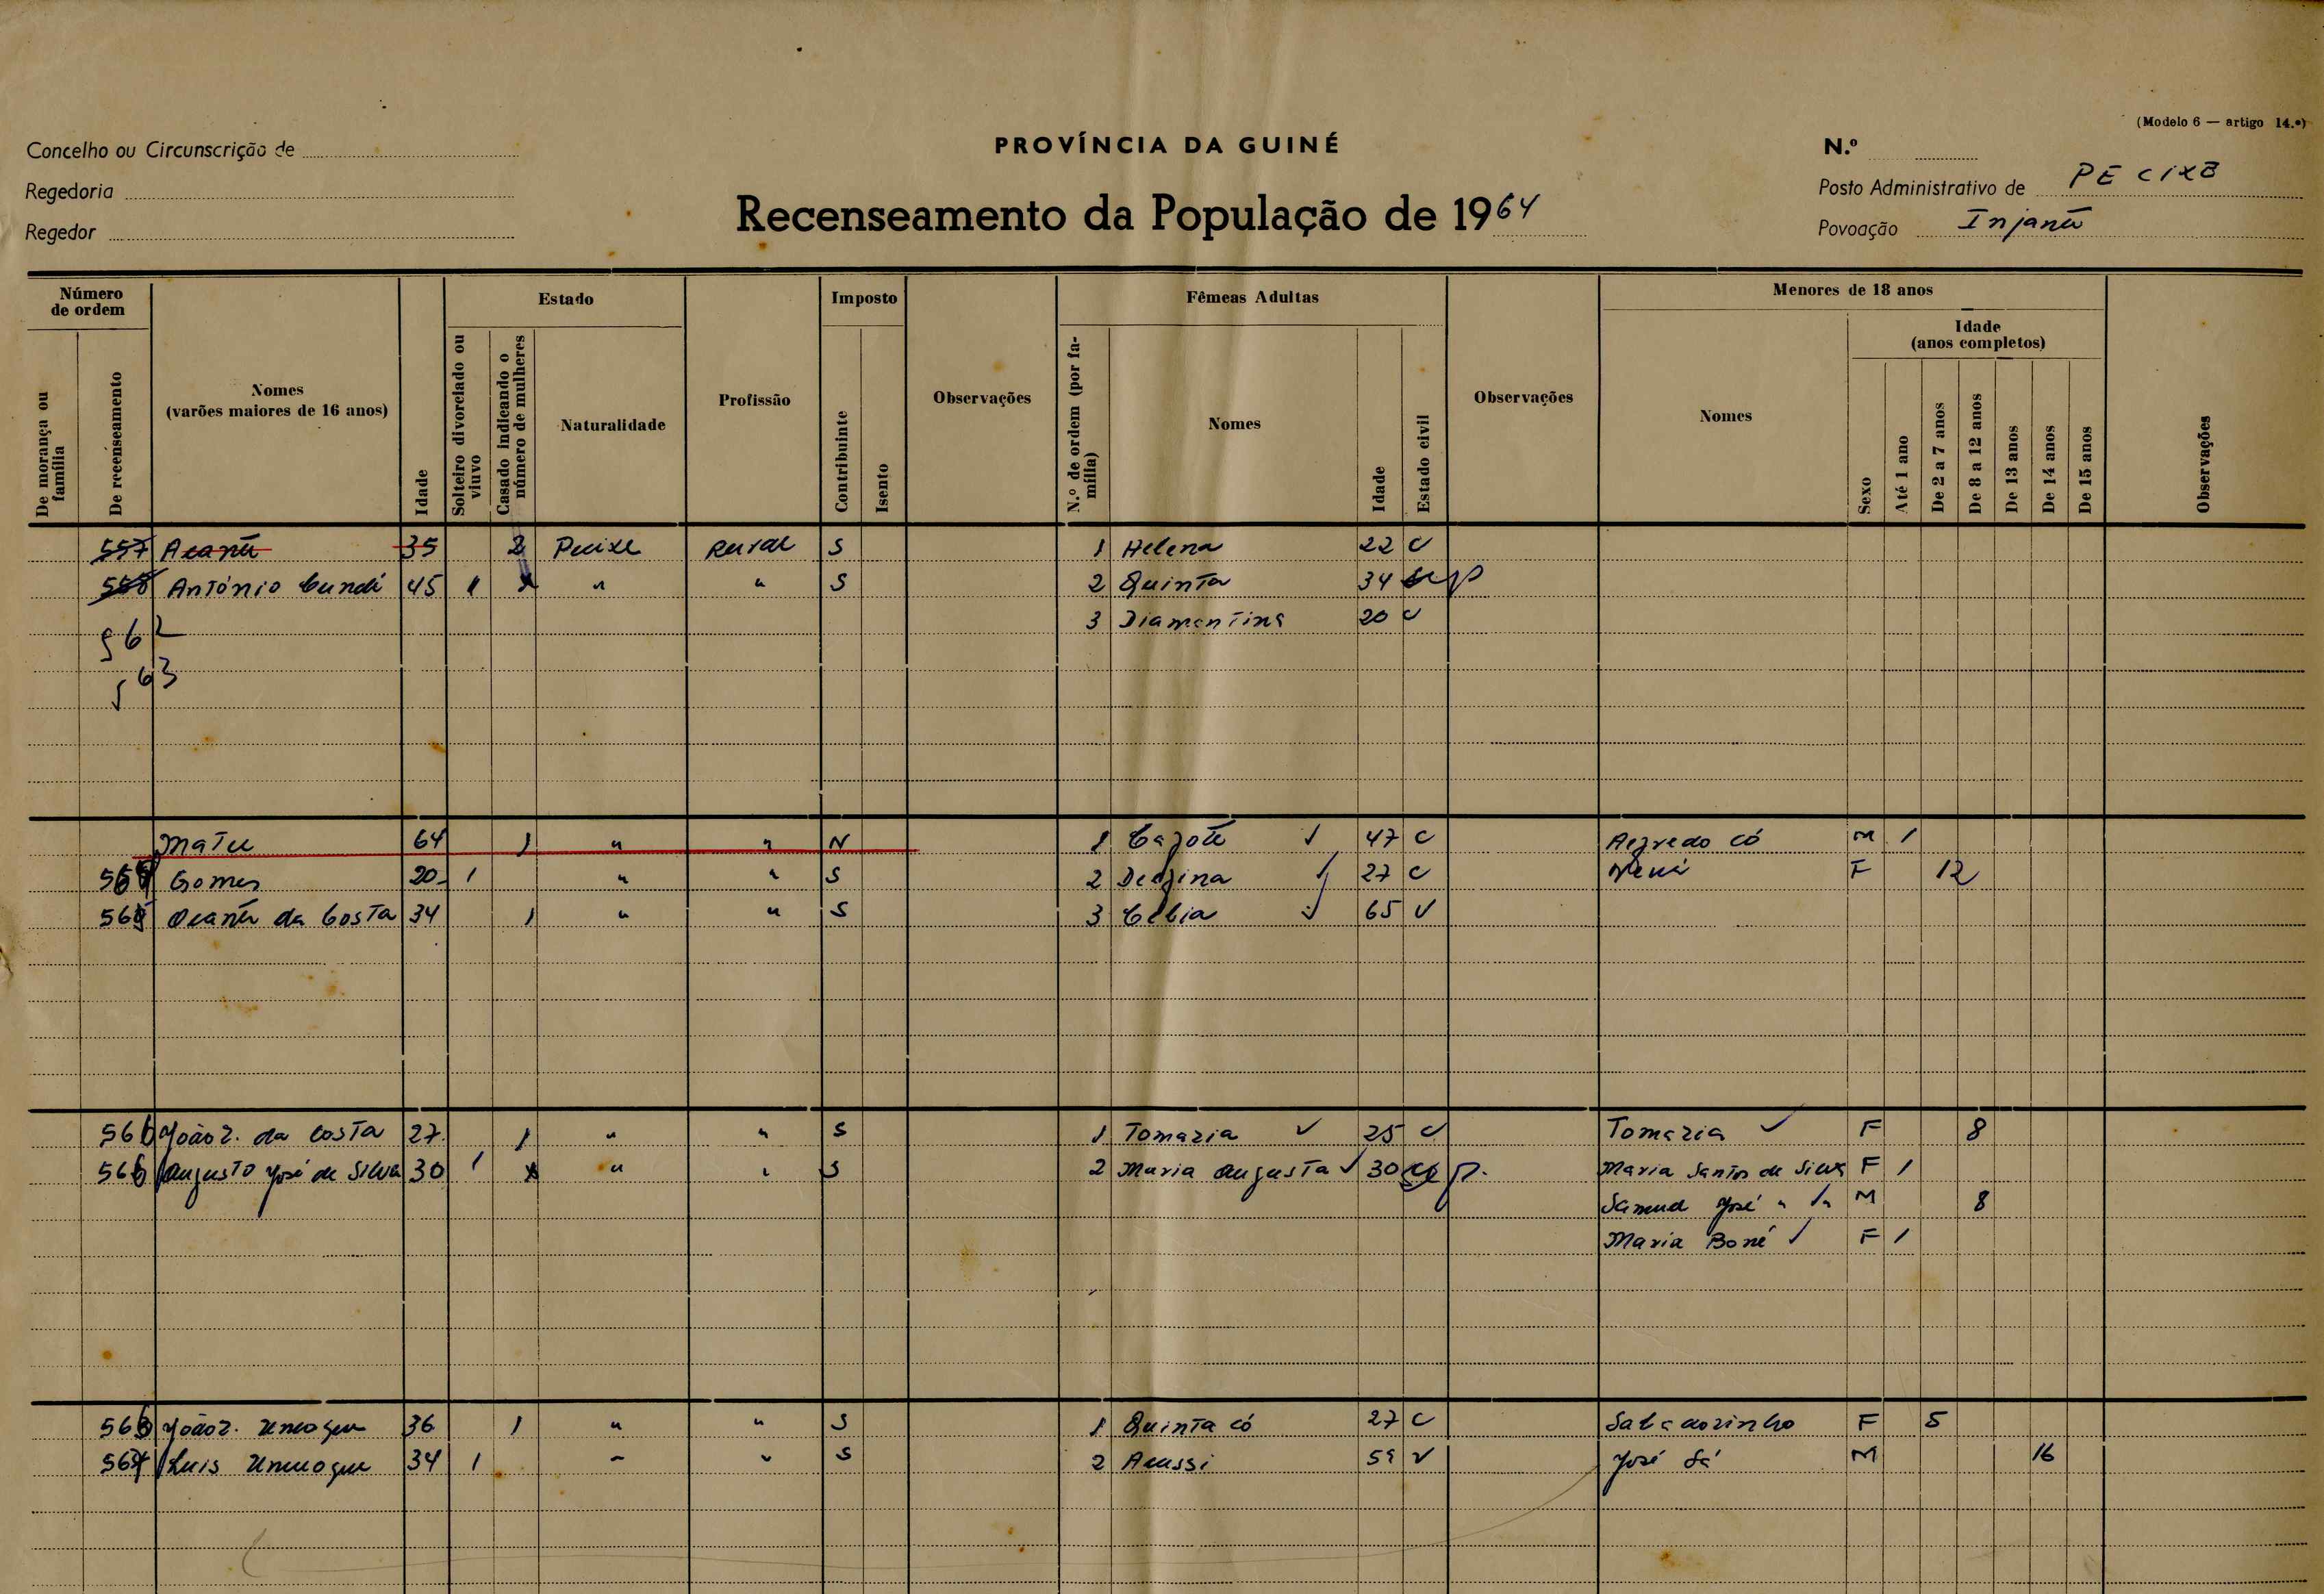 (Modelo 6 — artigo 14.º)
Concelho ou Circunscrição de
PROVÍNCIA DA GUINÉ
N.º
Regedoria
Posto Administrativo de PECIXE
Recenseamento da População de 1964
Regedor
Povoação Injanã
Número de ordem
Estado
Imposto
Fêmeas Adultas
Menores de 18 anos
De morança ou família
De recenseamento
Nomes (varões maiores de 16 anos)
Idade
Solteiro divorciado ou viuvo
Casado indicando o número de mulheres
Naturalidade
Profissão
Contribuinte
Isento
Observações
N.º de ordem (por família)
Nomes
Idade
Estado civil
Observações
Nomes
Sexo
Idade (anos completos)
Até 1 ano
De 2 a 7 anos
De 8 a 12 anos
De 13 anos
De 14 anos
De 15 anos
Observações
557 35 2 Pecixe Rural S 1 Helena 22 C
558 António Cundé 45 1 " " S 2 Quinta 34
562 3 Diamantina 20 C
563
Matu 64 1 " " N 1 47 C Alfredo Có M 1
Gomes 20 1 " " S 2 27 C F 12
da Costa 34 1 " " S 3 Célia 65 V
João Z. da Costa 27 1 " " S 1 Tomazia 25 C Tomazia F 8
Augusto José de Silva 30 1 " " S 2 Maria Augusta 30 Maria Santos de Silva F 1
Samuel José " " M 8
Maria Boné F 1
João Z. 36 1 " " S 1 Quinta Có 27 C F 5
Luis 34 1 " " S 2 Acussi 59 V José Sá M 16